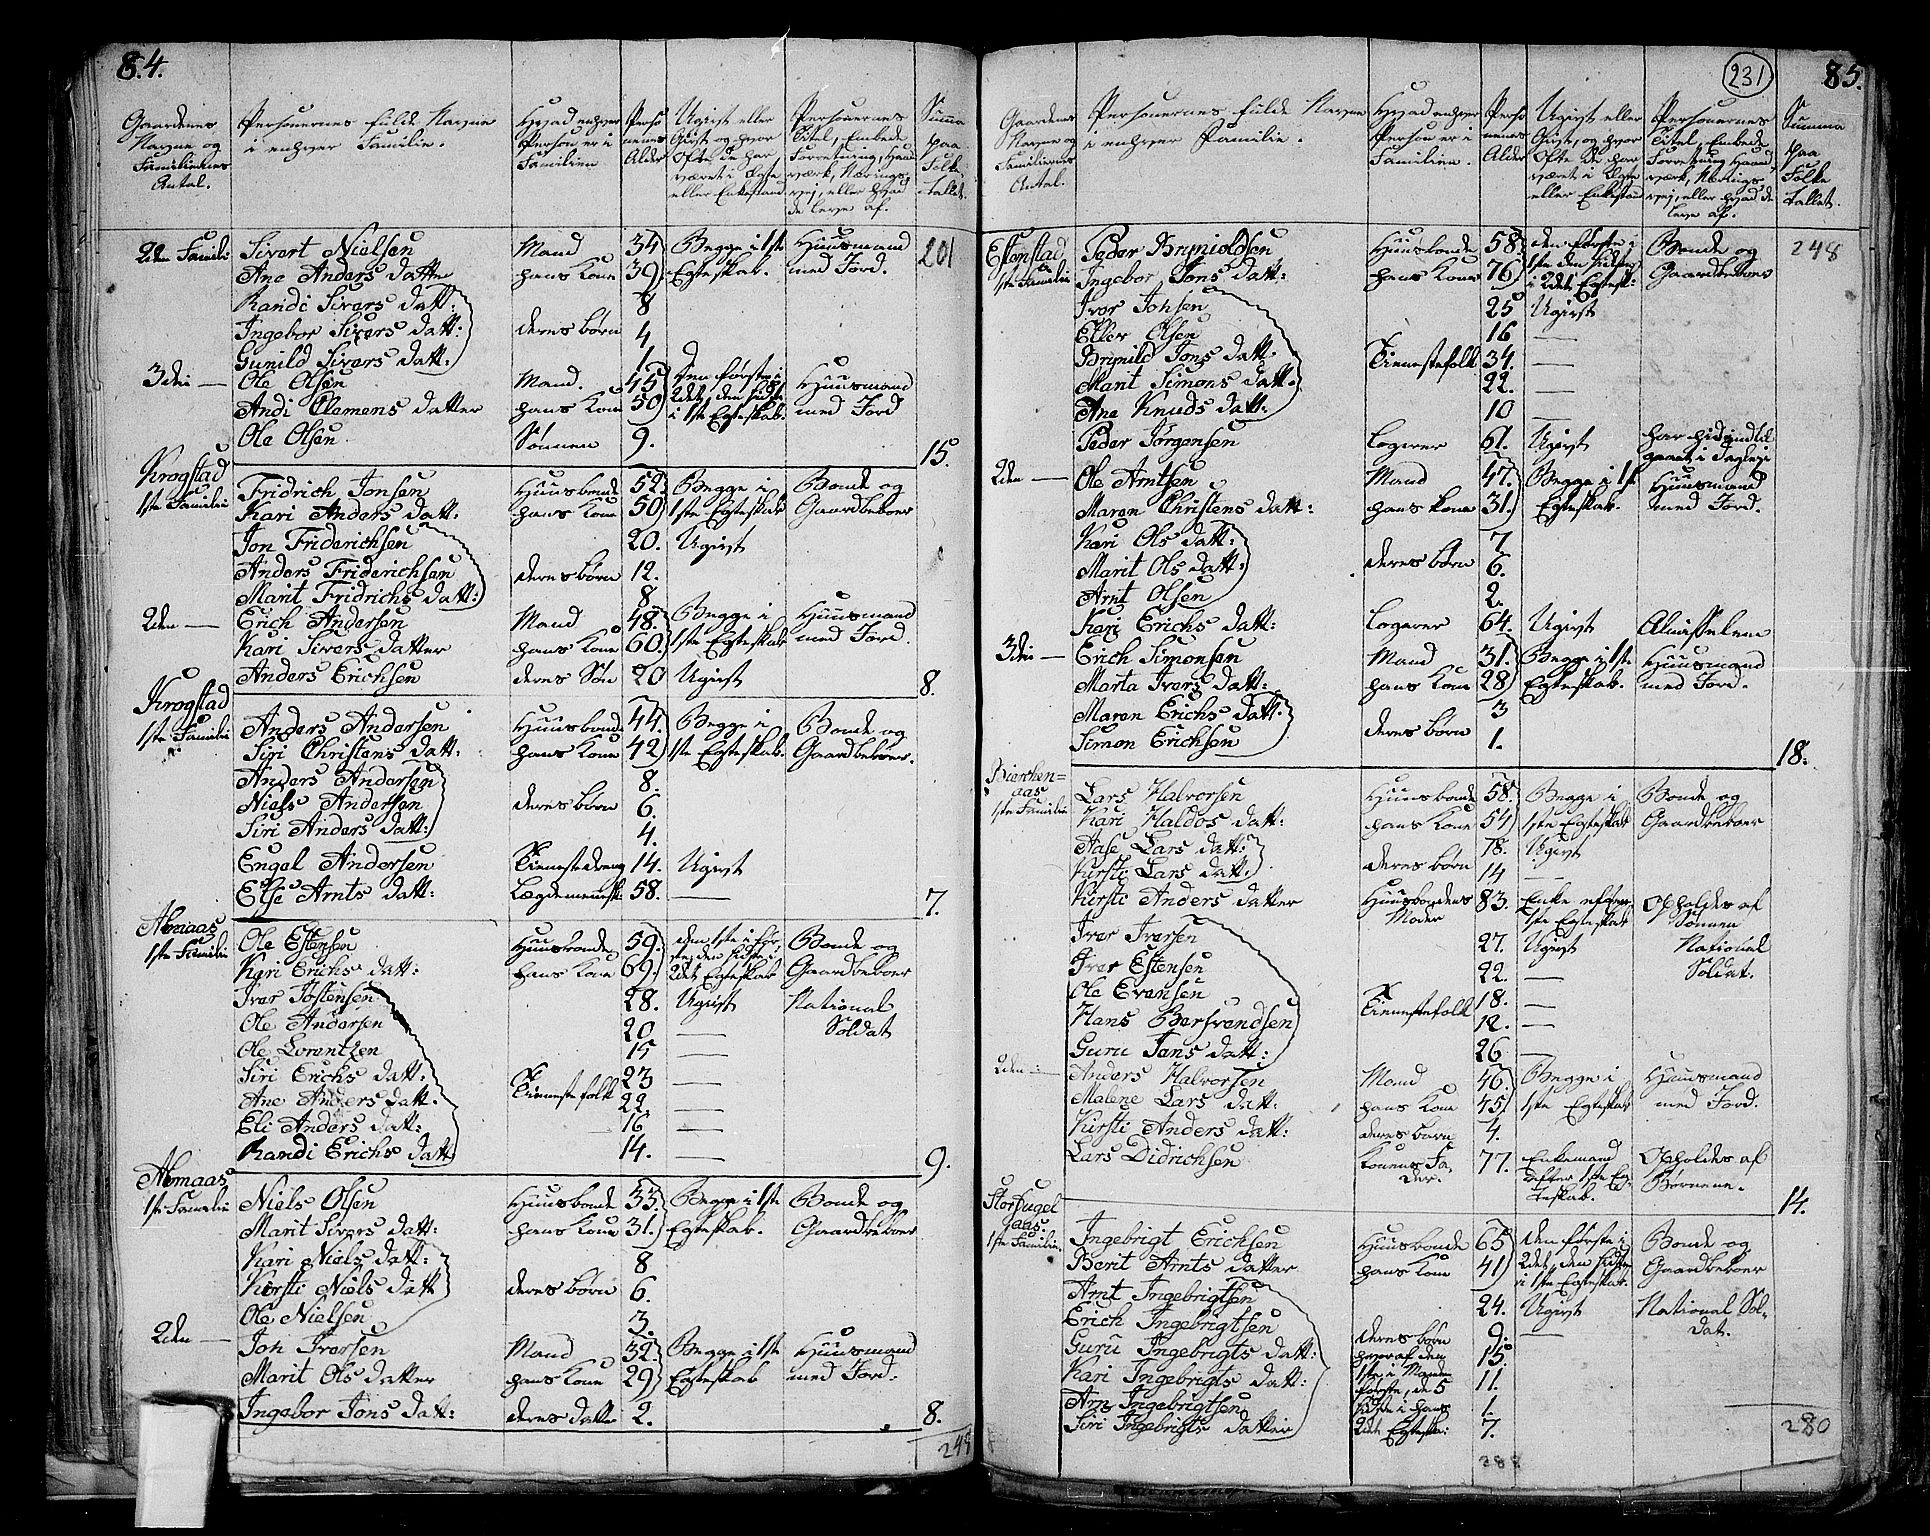 84.
Gaardenes Navne og Familiernes Antal.
Personernes fulde Navne i enhver Familie.
Hvad enhver Person er i Familien
Personernes Alder
Ugivt eller Givt og hvor ofte de har været i Egte eller Enkestand
Personernes Titel, Embede, Forretning, Haandværk, Næringsvej, eller hvad de leve af.
Summa paa Folketallet.
2den Famili Sivert Nielsen Mand 34 Begge i 1ste Huusmand 201
Ane Anders datter hans Kone 39 Egteskab. med Jord.
Randi Sivers datt: 8
Ingebor Sivers datt: deres børn 4
Gunild Sivers datt: 1.
3die — Ole Olsen Mand. 45 Den første i Huusmand
Andi Clemens datter hans Kone 50 2det, den sidste i 1ste Egteskab. med Jord
Ole Olsen Sønnen 9.
15.
Krogstad
1ste Familie Fridrich Jonsen Huusbonde 52. Begge i Bonde og
Kari Anders datt. hans Kone 50 1ste Egteskab Gaardbeboer
Jon Friderichsen 20. Ugivt
Anders Friderichsen deres børn 12.
Marit Fridrichs datt: 8
2den — Erich Andersen Mand 48. Begge i Huusmand
Kari Sivers datter hans Kone 60. 1ste Egteskab med Jord.
Anders Erichsen deres Søn 20 Ugivt
8.
Krogstad
1ste Familie Anders Andersen Huusbonde 44. Begge i Bonde og
Siri Christens datt: hans Kone 42 1ste Egteskab. Gaardbeboer.
Anders Andersen 8.
Niels Andersen deres børn 6.
Siri Anders datt: 4.
Engel Andersen Tienestedreng 14. Ugivt
Else Arnts datt: Lægdemennesk: 58. —
7.
Aomaas
1ste Familie Ole Estensen Huusbonde 59. den 1ste i første, den sidste i Bonde og
Kari Erichs datt: hans Kone 69. 2det Egteskab Gaardbeboer
Ivar Jostensen 28. Ugivt National
Ole Andersen 20 — Soldat
Ole Lorentzen 15 —
Siri Erichs datt: Tienestefolk 23 —
Ane Anders datt. 22 —
Eli Anders datt: 16 —
Randi Erichs datt 14. —
9.
Aomaas
1ste Familie Niels Olsen Huusbonde 33. Begge i 1ste Bonde og
Marit Sivers datt: hans Kone 31. Egteskab. Gaardbeboer
Kari Niels datt: 8
Kirsti Niels datt deres børn 6.
Ole Nielsen 3.
2den — Joh Iversen Mand 32. Begge i 1ste Huusmand
Marit Ols datter hans Kone 29 Egteskab med Jord.
Ingebor Jons datt: deres datter 2.
8.
248
231
85.
Gaardenes Navne og Familiernes Antal.
Personernes fulde Navne i enhver Familie.
Hvad enhver Person er i Familien.
Personernes Alder
Ugivt eller Givt, og hvor ofte de har været i Egte eller Enkestand
Personernes Titel, Embede Forretning, Haandværk, Næringsvej, eller hvad de leve af.
Summa paa Folketallet.
Estenstad
1ste Familie Peder Brynildsen Huusbonde 58. den første i 1ste den sidste Bonde og 248
Ingebor Jons datt: hans Kone 76 i 2det Egtesk: Gaardbeboer
Ivar Jonsen 25 Ugivt
Eller Olsen 16
Brynild Jons datt Tienestefolk 34. —
Marit Simons datt. 22. —
Ane Knuds datt: 10 —
Peder Jörgensen Logerer 61. Ugivt har hidindtil gaaet i
2den — Ole Arntsen Mand 47. Begge i 1ste Huusmand
Maren Christens datt: hans kone 31. Egteskab. med Jord.
Kari Ols datt: 7
Marit Ols datt: deres børn 6.
Arnt Olsen 2.
Kari Erichs datt: Logerer 64. Ugivt Almisselem
3die — Erich Simonsen Mand 31. Begge i 1ste Huusmand
Marta Ivers datt: hans Kone 28 Egteskab. med Jord.
Maren Erichs datt. deres børn 3
Simon Erichsen 1.
18.
Bierchenaas
1ste Familie Lars Halvorsen Huusbonde 58. Begge i Bonde og
Kari Haldos datt: hans Kone 54 1ste Egteskab Gaardbeboer
Aase Lars datt: deres børn 18. Ugivt
Kirsti Lars datt: 14 —
Kirsti Anders datter Huusbondens Moder 83. Enke efter 1ste Egteskab Opholdes af Sönnen
Ivar Iversen 27. Ugivt National Soldat.
Ivar Estensen 22. —
Ole Evensen Tienestefolk 18. —
Hans Bersvendsen 12. —
Guru Jans datt: 26 —
2den — Anders Halvorsen Mand 46. Begge i Huusmand
Malene Lars datt. hans Kone 45 1ste Egteskab med Jord.
Kirsti Anders datt: deres barn 4.
Lars Didrichsen Konens Fader. 77. Enkemand efter 1ste Egteskab. Opholdes af Børnene.
14.
Storhugelaas.
1ste Familie. Ingebrigt Erichsen Huusbonde 65 den første i Bonde og
Berit Arnts datter hans Kone 41 2det, den sidste i 1ste Egteskab. Gaardbeboer
Arnt Ingebrigtsen 24. Ugivt National Soldat.
Erich Ingebrigtsen deres børn 9. —
Guru Ingebrigts datt: hvoraf den 15.
Kari Ingebrigts datt: 1ste i Manden første, de 5 11.
Arn Ingebrigtsen sidste i hans 1.
Siri Ingebrigts datter 2det Egteska: 7.
280